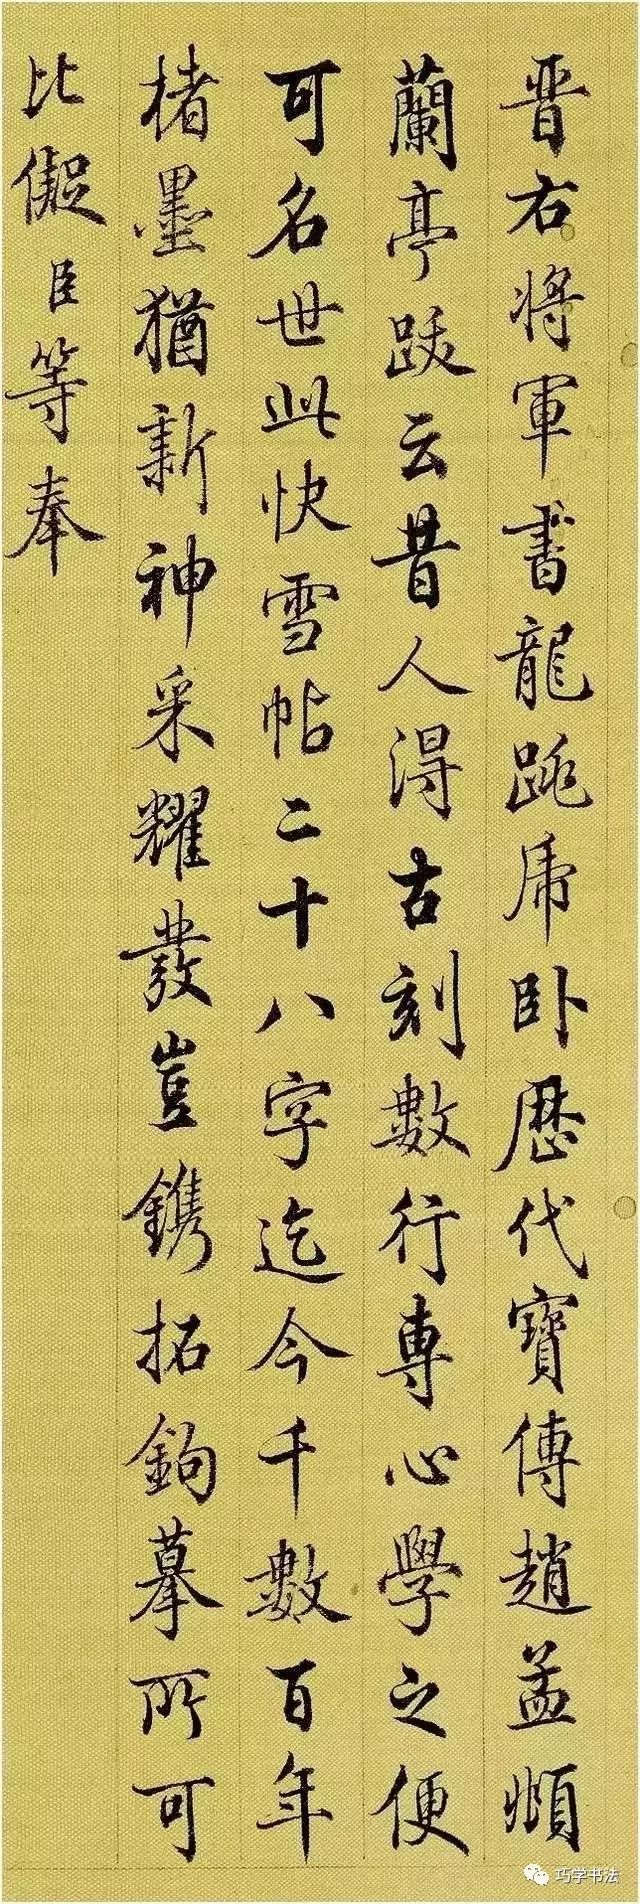 晋右将軍書龍跳虎卧歷代寶傳趙孟頫
蘭亭跋云昔人得古刻數行専心學之便
可名世此快雪帖二十八字迄今千數百年
楮墨猶新神采耀發豈鐫拓鉤摹所可
比儗臣等奉
巧学书法